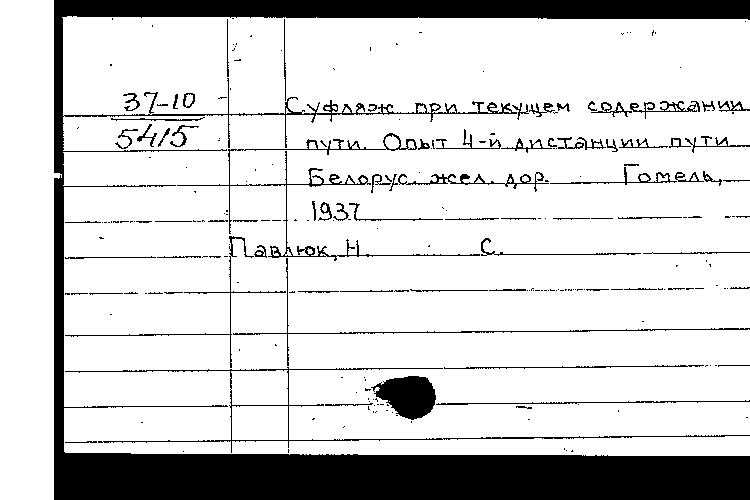 37-10
5415
Суфляж при текущем содержании
пути. Опыт 4-й дистанции пути
Белорус. жел. дор. Гомель,
1937
Павлюк, Н. С.